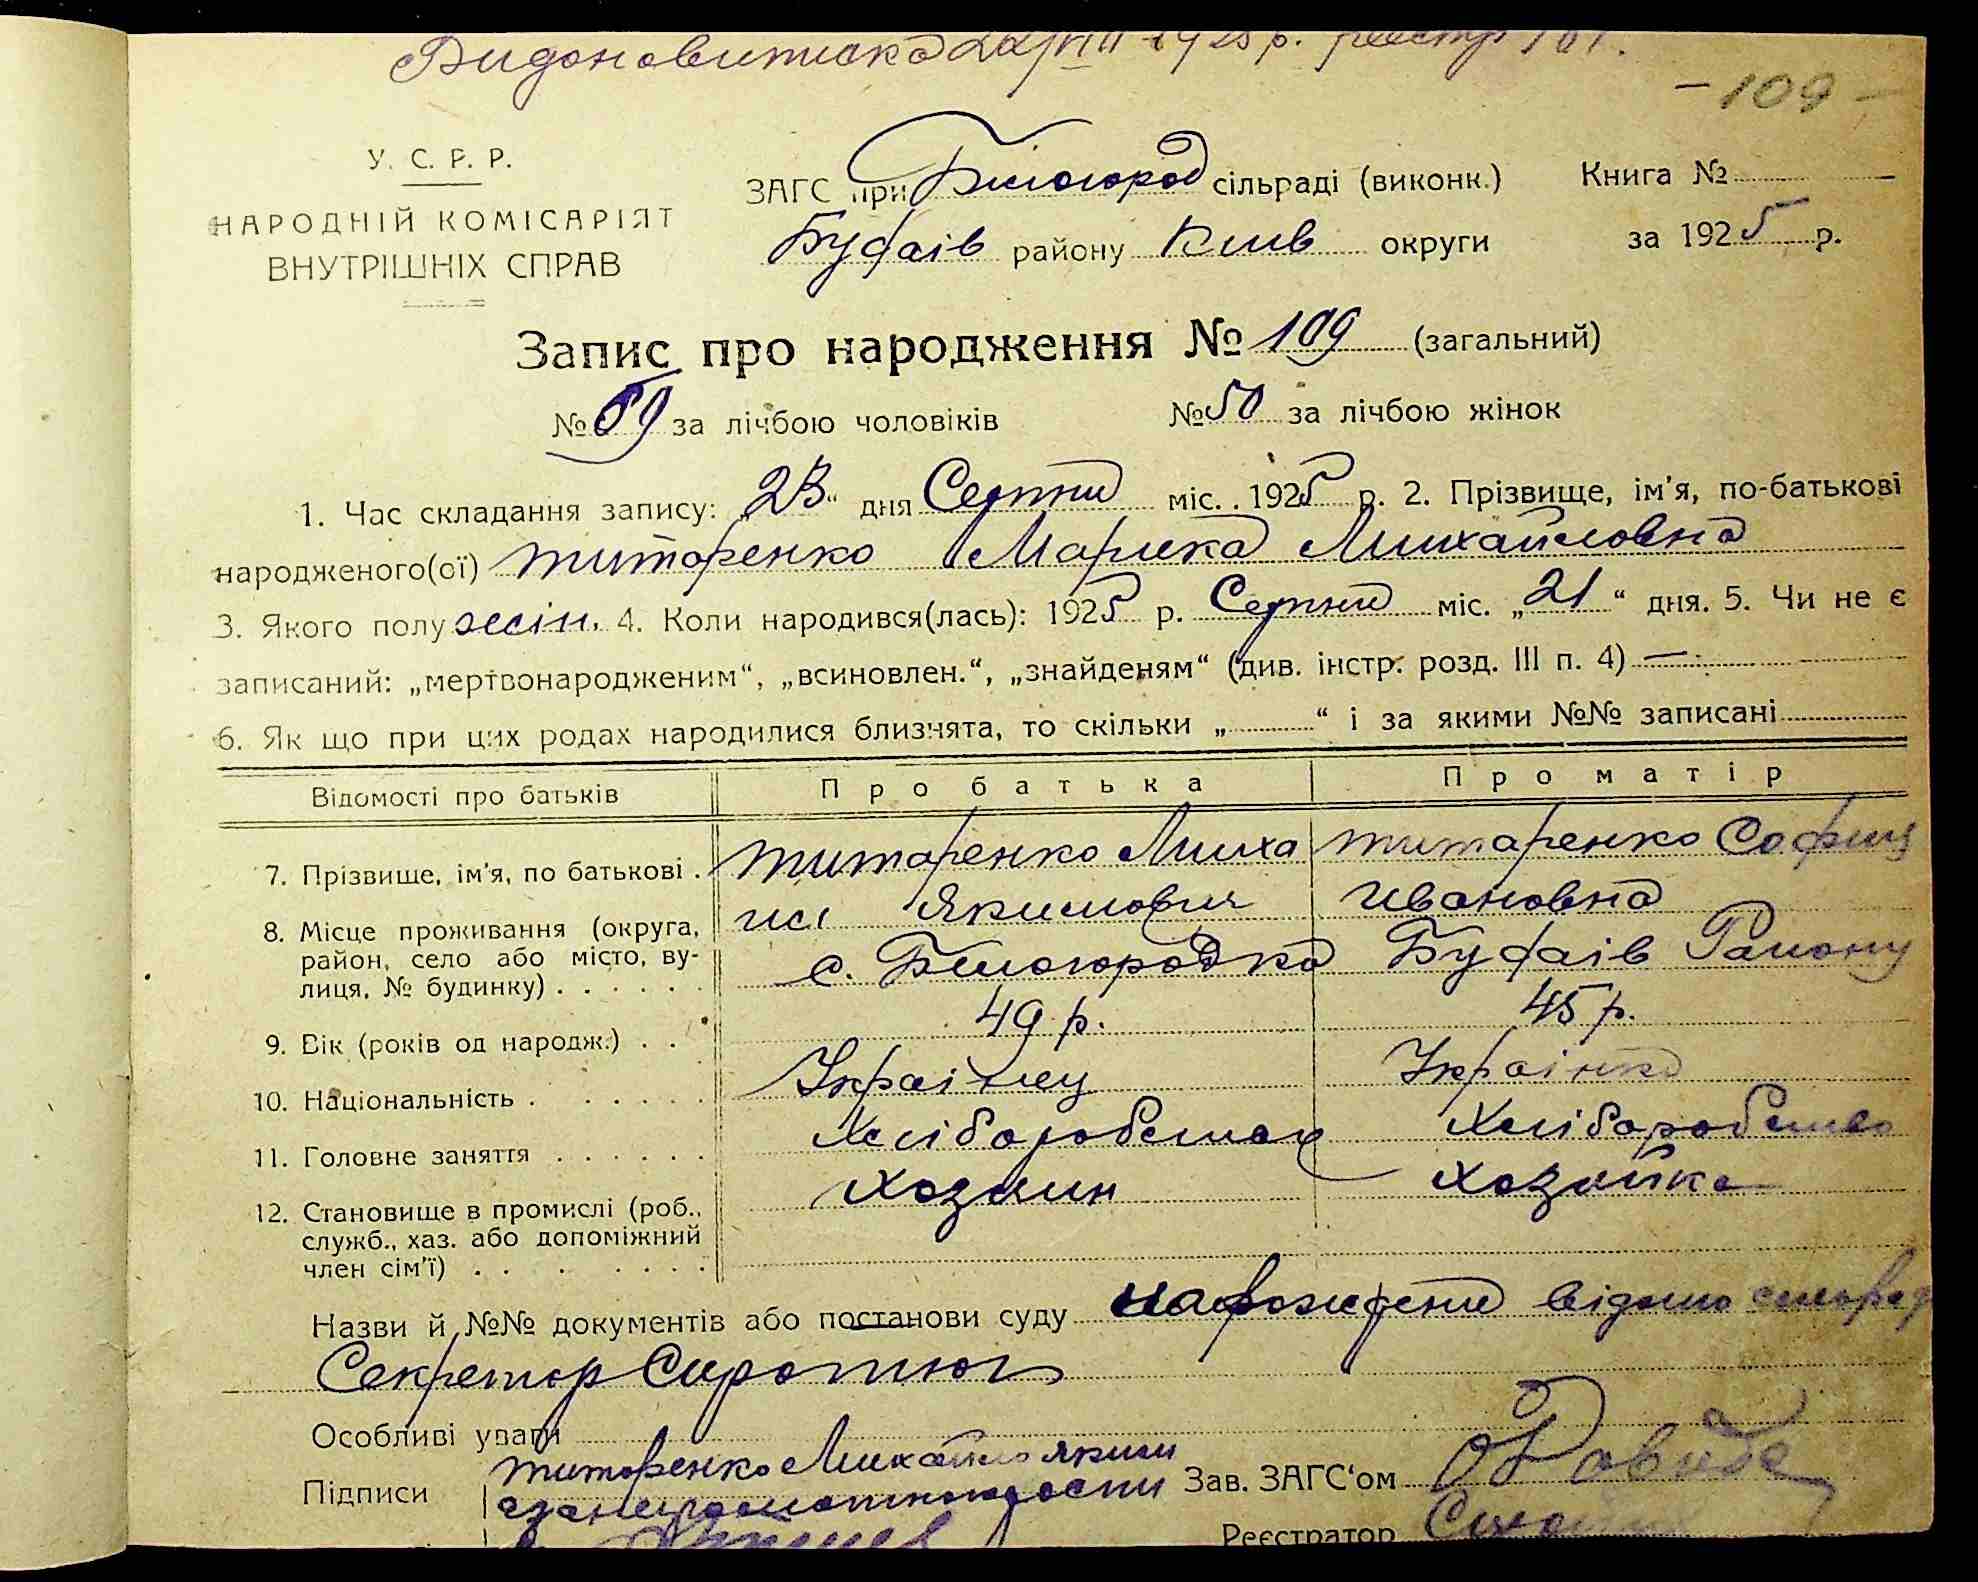 Видона виписка 22/VIII 1925 р. реєстр
— 109 —
У. С. Р. Р.
НАРОДНІЙ КОМІСАРІЯТ
ВНУТРІШНІХ СПРАВ
ЗАГС при Білогород сільраді (виконк.) Книга №
Будаїв району Київ округи за 1925 р.
Запис про народження № 109 (загальний)
№ 59 за лічбою чоловіків № 50 за лічбою жінок
1. Час складання запису: „23“ дня Серпня міс. 1925 р. 2. Прізвище, ім'я, по-батькові
народженого(ої) Титаренко Марика Михайловна
3. Якого полу жін. 4. Коли народився(лась): 1925 р. Серпня міс. „21“ дня. 5. Чи не є
записаний: „мертвонародженим“, „всиновлен.“, „знайденям“ (див. інстр. розд. III п. 4) —
6. Як що при цих родах народилися близнята, то скільки „ “ і за якими №№ записані
Відомості про батьків Про батька Про матір
7. Прізвище, ім'я, по батькові . Титаренко Миха Титаренко София
ил Якимович Ивановна
8. Місце проживання (округа, район, село або місто, вулиця, № будинку) . . . . . . с. Білогородка Будаїв Району
9. Вік (років од народж.) . . 49 р. 45 р.
10. Національність . . . . . . Українец Українка
11. Головне заняття . . . . . . Хліборобство Хліборобство
12. Становище в промислі (роб., служб., хаз. або допоміжний член сім'ї) . . . . . . . Хозяин Хозяйка
Назви й №№ документів або постанови суду народження відомо сільрад
Секретор Сиротюк
Особливі уваги
Підписи Титаренко Михайло Яким
за неграмотного Зав. ЗАГС‘ом
Реєстратор